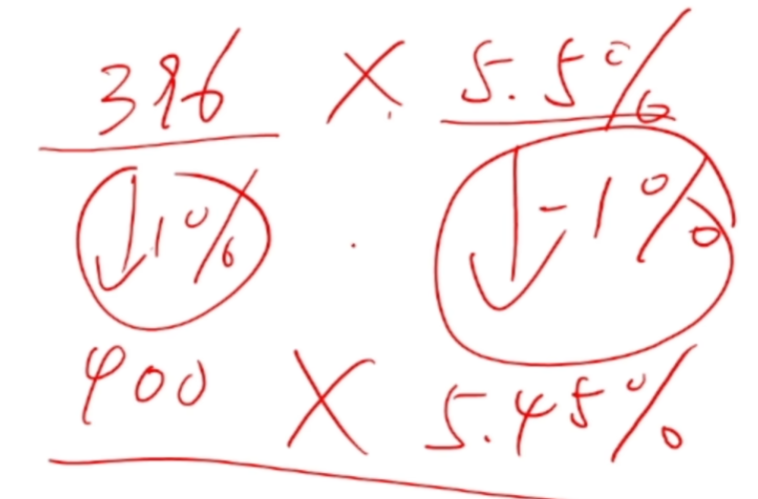 396 × 5.5%
↓1% ↓-1%
400 × 5.45%